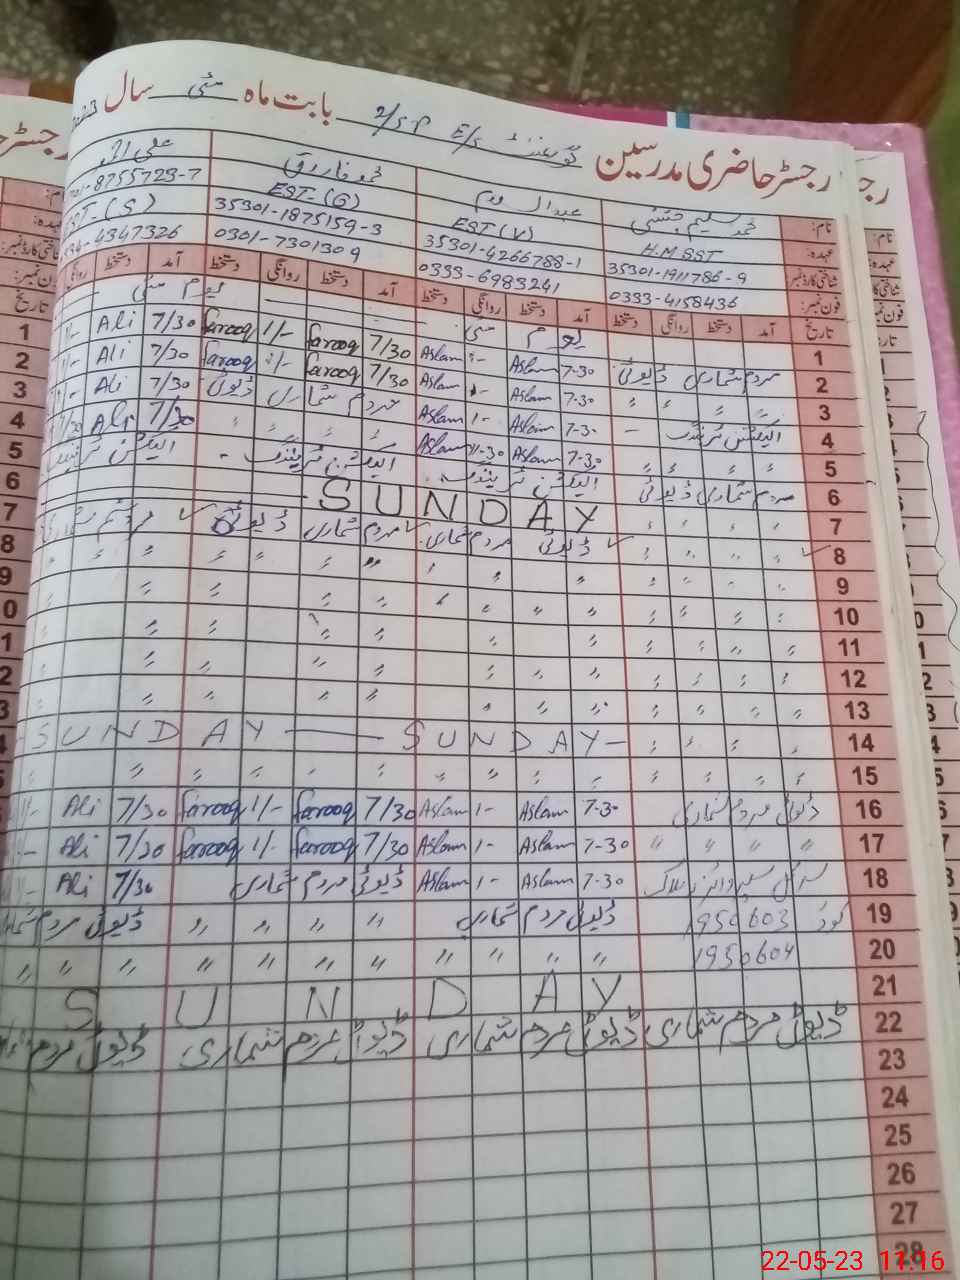 رجسٹر حاضری مدرسین گورنمنٹ E/S 2/S.P بابت ماہ مئی سال
نام: محمد سلیم چشتی عبدالسلام محمد فاروق علی احمد
عہدہ: H.M SST EST (V) EST-(G) EST-(S)
شناختی کارڈ نمبر: 35301-1911786-9 35301-4266788-1 35301-1875159-3 8755723-7
فون نمبر: 0333-4158436 0333-6983241 0301-7301309 4347326
تاریخ آمد دستخط روانگی دستخط آمد دستخط روانگی دستخط آمد دستخط روانگی دستخط آمد دستخط روانگی
1 یوم مئی یوم مئی
2 مردم شماری ڈیوٹی 7-30 Aslam 1- Aslam 7/30 farooq 1/- farooq 7/30 Ali 1/-
3 " " " " 7-30 Aslam 1- Aslam 7/30 farooq 1/- farooq 7/30 Ali 1/-
4 الیکشن ٹریننگ - 7-30 Aslam 1- Aslam مردم شماری ڈیوٹی 7/30 Ali 1/-
5 " " " " 7-30 Aslam 11-30 Aslam " " " " 7/30 Ali
6 مردم شماری ڈیوٹی الیکشن ٹریننگ الیکشن ٹریننگ - الیکشن ٹریننگ
7 " " " " SUNDAY
8 " " " " ڈیوٹی مردم شماری مردم شماری ڈیوٹی مردم شماری
9 " " " " " " " " " " " "
10 " " " " " " " " " " "
11 " " " " " " " "
12 " " " " " " " "
13 " " " " " " " "
14 " " " " SUNDAY SUNDAY
15 " " " " " " " " " " " "
16 ڈیوٹی مردم شماری 7-30 Aslam 1- Aslam 7/30 farooq 1/- farooq 7/30 Ali 1/-
17 " " " " 7-30 Aslam 1- Aslam 7/30 farooq 1/- farooq 7/20 Ali 1/-
18 سرکل سپروائزر بلاک 7-30 Aslam 1- Aslam ڈیوٹی مردم شماری 7/30 Ali 1/-
19 کوڈ 1950603 ڈیوٹی مردم شماری " " " " ڈیوٹی مردم شماری
20 1950604 " " " " " " " " " " "
21 SUNDAY
22 ڈیوٹی مردم شماری ڈیوٹی مردم شماری ڈیوٹی مردم شماری ڈیوٹی مردم
23
24
25
26
27
28
22-05-23 11:16